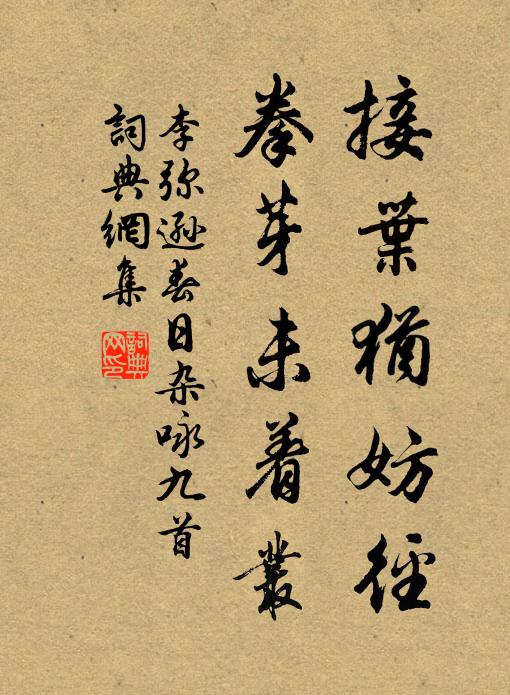 接葉猶妨徑
拳芽未着叢
李弥遜春日杂咏九首
詞典網集
詞典網印